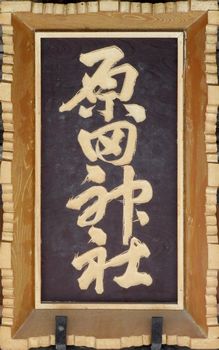 原田神社